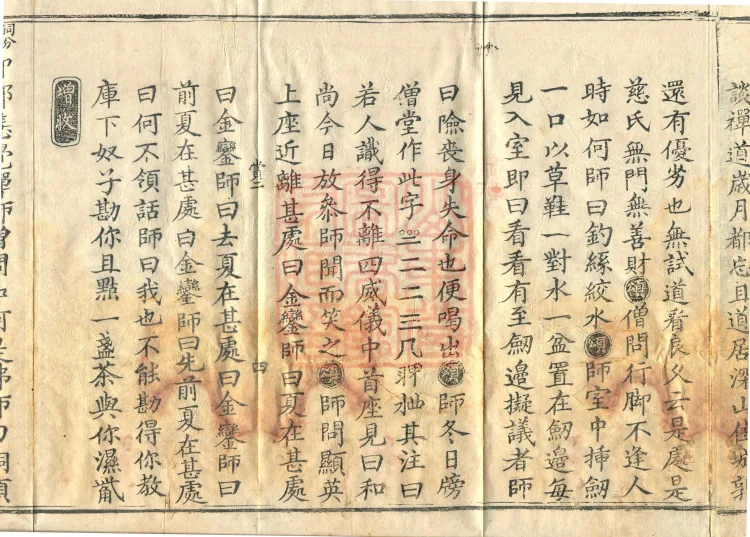 談禪道歲月都忘且道居深山住城郭
還有優劣也無試道看良久云是處是
慈氏無門無善財頌僧問行脚不逢人
時如何師曰釣絲絞水頌師室中揷劒
一口以草鞋一對水一盆置在劒邊每
見入室即曰看看有至劒邊擬議者師
曰險喪身失命也便喝出頌師冬日牓
僧堂作此字二二三几其注曰
若人識得不離四威儀中首座見曰和
尚今日放叅師聞而笑之頌師問顯英
上座近離甚處曰金鑾師曰夏在甚處
賞二 四
曰金鑾師曰去夏在甚處曰金鑾師曰
前夏在甚處曰金鑾師曰先前夏在甚處
曰何不領話師曰我也不能勘得你教
庫下奴子勘你且點一盞茶與你濕觜
增收
禪師僧問如何是佛師曰銅頭